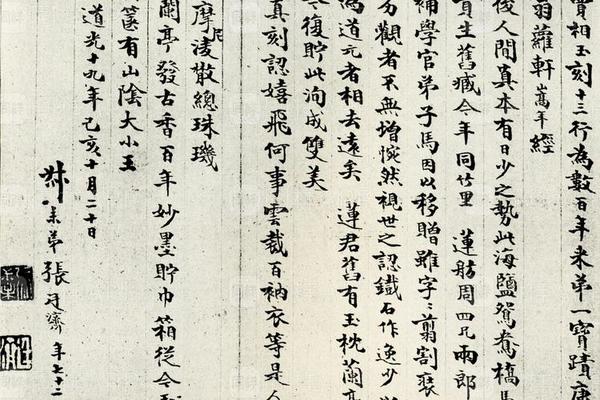 寶相玉刻十三行為數百年來弟一寶蹟康
翁蘿軒嵩年經
後人間真本有日少之勢此海鹽鴛鴦槗馬
貢生舊臧今年同竹里 蓮舫周四兄兩郎
補學官弟子馬因以移贈雖字字翦割裵
方觀者不無增惋然視世之認鐵石作逸少以
馮道元者相去遠矣 蓮君舊有玉枕蘭亭
今復貯此洵成雙美
真刻認嬉飛何事雲裁百衲衣等是人
摩凌散總珠璣
蘭亭發古香百年妙墨貯巾箱從今
篋有山陰大小王
道光十九年己亥十月二十日
叔未弟張廷濟 年七十二